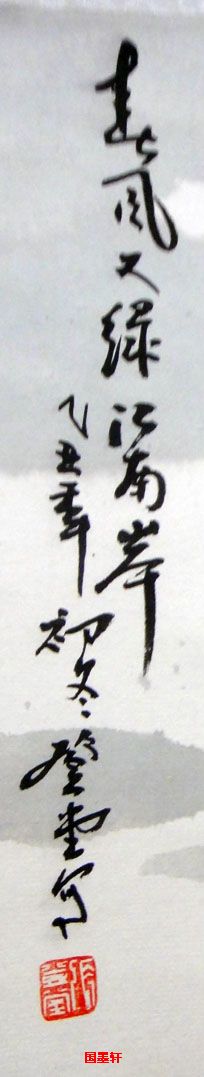 春风又绿江南岸
乙丑年初冬登堂写
国墨轩